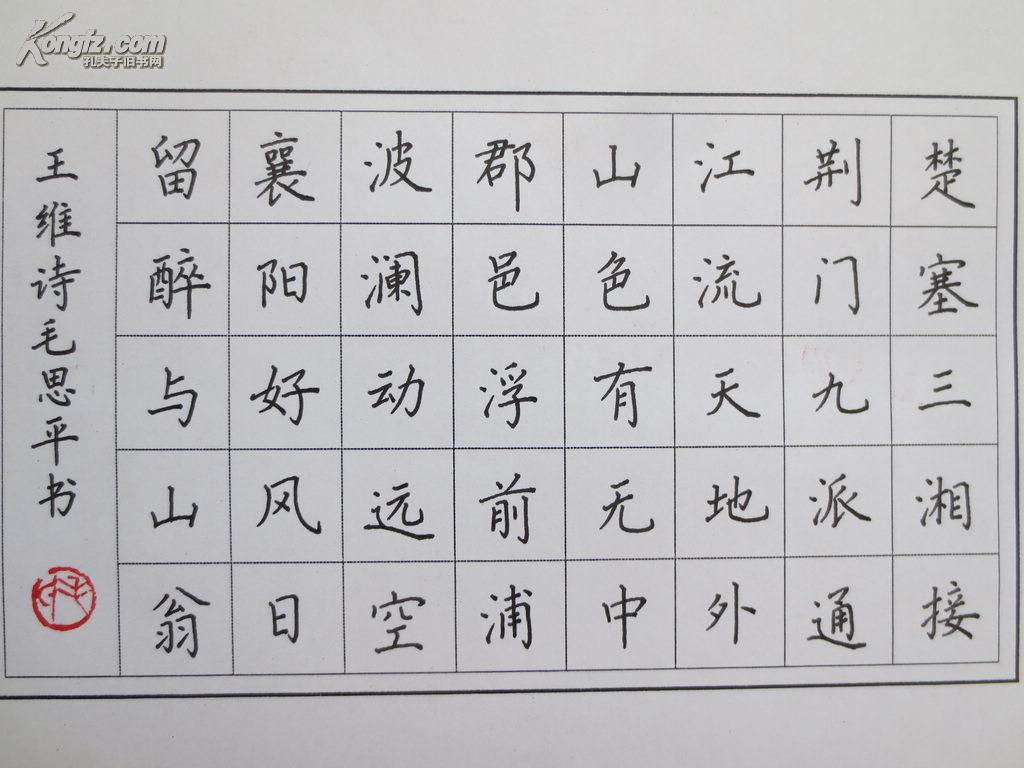 Kongfz.com
孔夫子旧书网
楚塞三湘接
荆门九派通
江流天地外
山色有无中
郡邑浮前浦
波澜动远空
襄阳好风日
留醉与山翁
王维诗毛思平书